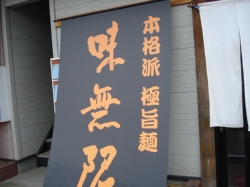 本格派 極旨麺
味無限